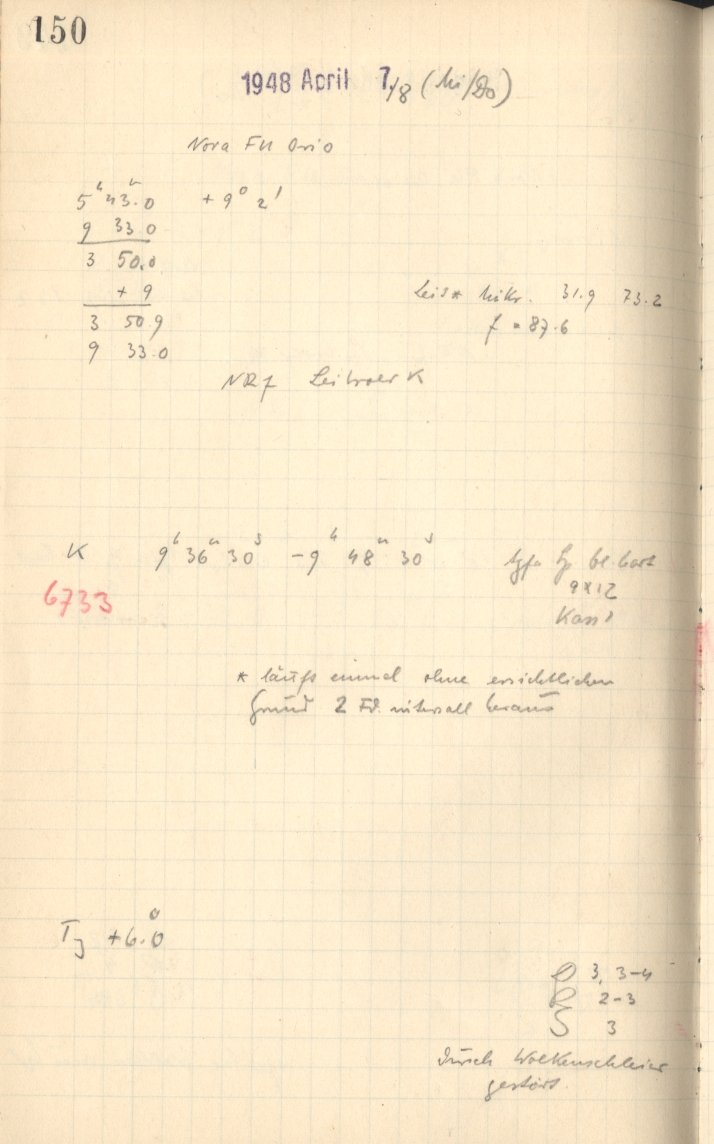 150
1948 April 7./8 (Mi/Do)
Nova FU Orio
5ʰ43ᵐ.0 +9° 2'
9 33 0
3 50.0
+ 9
3 50 9
9 33.0
Leit* Mikr. 31.9 73.2
f = 87.6
NR 7
K 9ʰ 36ᵐ 30ˢ – 9ʰ 48ᵐ 30ˢ
6733
9×12
* läuft einmal ohne ersichtlichen
Grund 2 Fd. intervall heraus
+6.0°
3, 3–4
2–3
3
Durch Wolkenschleier
gestört.